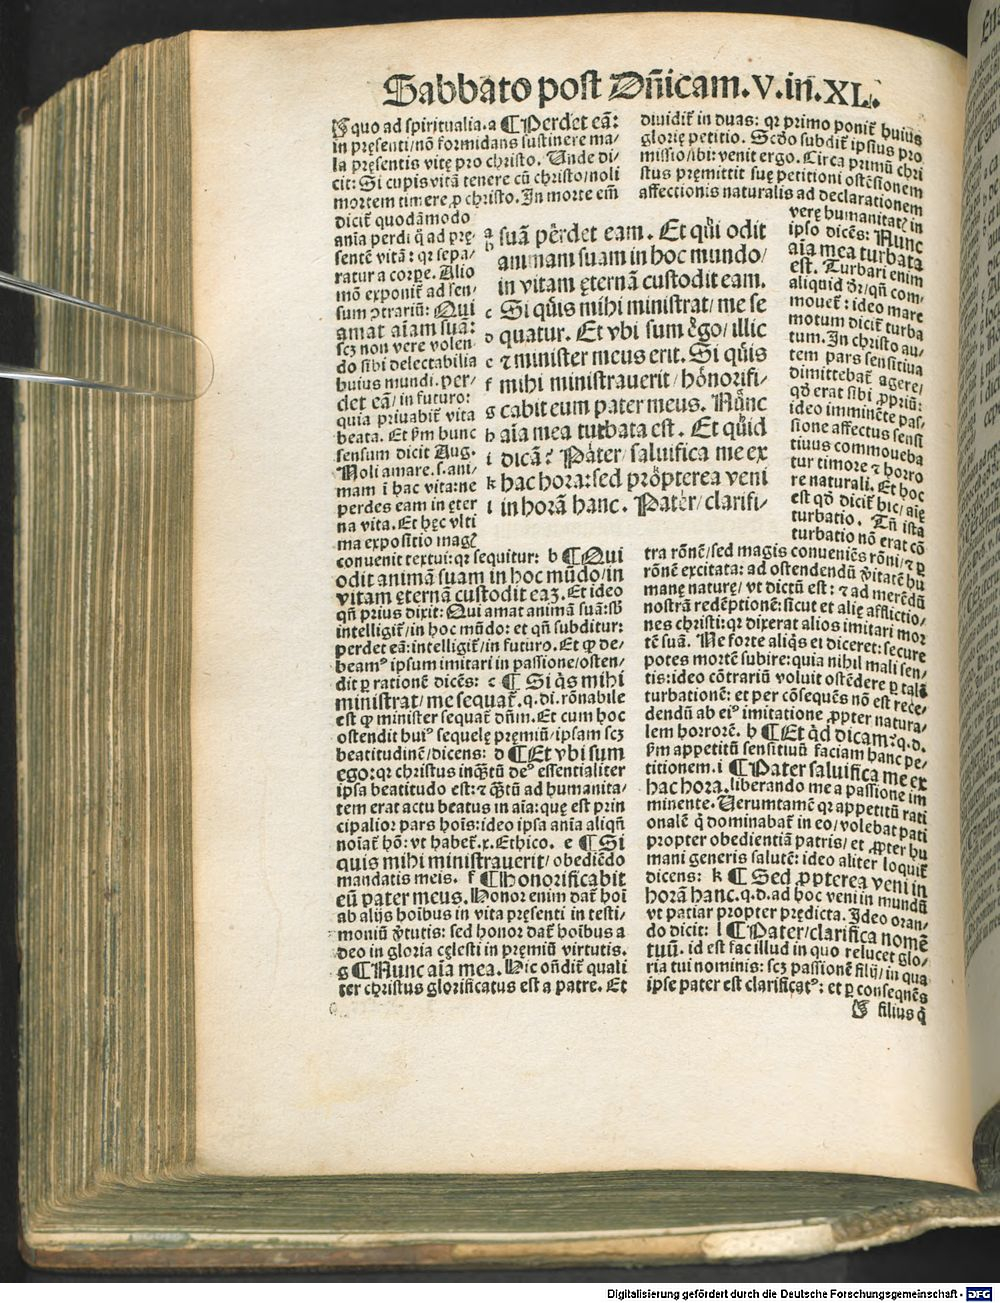 Sabbato post Dñicam.V.in.XL.
quo ad spiritualia.a ¶Perdet eã:
in pręsenti/nõ formidans sustinere ma-
la pręsentis vitę pro christo. Unde di-
cit: Si cupis vitã tenere cũ christo/noli
mortem timere ꝓ christo. In morte em̃
dicit̃ quodãmodo
aĩa perdi q̃ ad pre-
sentẽ vitã: qꝛ sepa/
ratur a corpe. Alio
mõ exponit̃ ad sen/
sum ↄtrariũ: Qui
amat aĩam suã:
scꝫ non vere volen-
do sibi delectabilia
huius mundi. per-
det eã/in futuro:
quia priuabit̃ vita
beata. Et ẜm hunc
sensum dicit Aug.
Noli amare.s.ani-
mam ĩ hac vita:ne
perdes eam in ęter
na vita. Et hęc vlti
ma expositio magꝭ
conuenit textui:qꝛ sequitur: b ¶Qui
odit animã suam in hoc mũdo/in
vitam ęternã custodit eaꝫ. Et ideo
qñ prius dixit: Qui amat animã suã:sb̃
intelligit̃/in hoc mũdo: et qñ subditur:
perdet eã:intelligit̃/in futuro. Et ꝙ de-
beamꝰ ipsum imitari in passione/osten/
dit ꝑ rationẽ dicẽs: c ¶ Si q̃s mihi
ministrat/me sequat̃.q.di.rõnabile
est ꝙ minister sequat̃ dñm.Et cum hoc
ostendit huiꝰ sequelę pręmiũ/ipsam scꝫ
beatitudinẽ/dicens: d ¶Et vbi sum
ego:qꝛ christus inq̃tũ deꝰ essentialiter
ipsa beatitudo est:⁊ q̃tũ ad humanita/
tem erat actu beatus in aĩa:quę est prin
cipalior pars hoĩs:ideo ipsa anĩa aliqñ
noĩat̃ hõ: vt habet̃.x.Ethico. e ¶Si
quis mihi ministrauerit/obediẽdo
mandatis meis. f ¶Honorificabit
eũ pater meus. Honor enim dat̃ hoĩ
ab alijs hoĩbus in vita pręsenti in testi/
moniũ ṽtutis: sed honor dat̃ hoĩbus a
deo in gloria cęlesti in pręmiũ virtutis.
g ¶Nunc aĩa mea. Hic oñdit̃ quali
ter christus glorificatus est a patre. Et
a suã pèrdet eam. Et qũi odit
b animam suam in hoc mundo/
in vitam ęternã custodit eam.
c Si qũis mihi ministrat/me se
d quatur. Et vbi sum ègo/illic
e ⁊ minister meus erit. Si qũis
f mihi ministrauerit/hònorifi/
g cabit eum pater meus. Nũnc
h aĩa mea turbata est. Et qũid
i dicã? Pàter/saluifica me ex
k hac hora:sed pròpterea veni
l in horã hanc. Patèr/clarifi/
diuidit̃ in duas: qꝛ primo ponit̃ huius
glorię petitio. Scďo subdit̃ ipsius pro
missio/ibi:venit ergo. Circa primũ chri
stus pręmittit suę petitioni ostẽsionem
affectionis naturalis ad declarationem
verę humanitatꝭ in
ipso dicẽs: Nunc
aĩa mea turbata
est. Turbari enim
aliquid dr̃/qñ com-
mouet̃:ideo mare
motum dicit̃ turba
tum. In christo au/
tem pars sensitiua
dimittebat̃ agere/
qď erat sibi ꝓpriũ:
ideo imminẽte pas/
sione affectus sensi
tiuus commoueba
tur timore ⁊ horro
re naturali. Et hoc
est qď dicit̃ hic/aĩę
turbatio. Tñ ista
turbatio nõ erat cõ
tra rõnẽ/sed magis conueniẽs rõni/⁊ ꝑ
rõnẽ excitata: ad ostendendũ ṽitatẽ hu
manę naturę/vt dictũ est: ⁊ ad merẽdũ
nostrã redẽptionẽ:sicut et alię afflictio/
nes christi:qꝛ dixerat alios imitari mor
tẽ suã. Ne forte aliq̃s ei diceret: secure
potes mortẽ subire:quia nihil mali sen/
tis:ideo cõtrariũ voluit ostẽdere ꝑ talẽ
turbationẽ: et per cõsequẽs nõ est rece/
dendũ ab eiꝰ imitatione ꝓpter natura/
lem horrorẽ. h ¶Et q̃d dicam?q.d.
ẜm appetitũ sensitiuũ faciam hanc pe/
titionem.i ¶Pater saluifica me ex
hac hora.liberando me a passione im
minente. Verumtamẽ qꝛ appetitũ rati
onalẽ q̃ dominabat̃ in eo/volebat pati
propter obedientiã patris/et ꝓpter hu
mani generis salutẽ: ideo aliter loquit̃
dicens: k ¶ Sed ꝓpterea veni in
horã hanc.q.d.ad hoc veni in mundũ
vt patiar propter prędicta. Ideo oran/
do dicit: l ¶Pater/clarifica nomẽ
tuũ. id est fac illud in quo relucet glo/
ria tui nominis: scꝫ passionẽ filij/in qua
ipse pater est clarificatꝰ: et ꝑ conseqnẽs
filius q̃
Digitalisierung gefördert durch die Deutsche Forschungsgemeinschaft - DFG